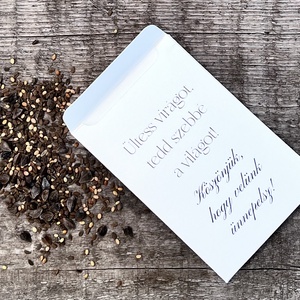 Ültess virágot,
tedd szebbé
a világot!
Köszönjük,
hogy velünk
ünnepelsz!